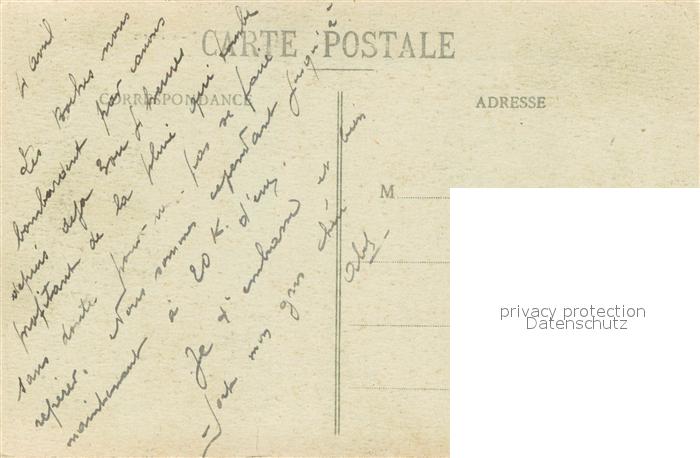 CARTE POSTALE
CORRESPONDANCE
ADRESSE
M
4 avril
Les boches nous
bombardent par canons
depuis déjà 3 ou 4 heures
profitant de la pluie qui tombe
sans doute pour ne pas se faire
repérer. Nous sommes cependant jusqu'à
maintenant à 20 K. d'eux.
Je t'embrasse
fort mon gros chéri et bien
privacy protection
Datenschutz